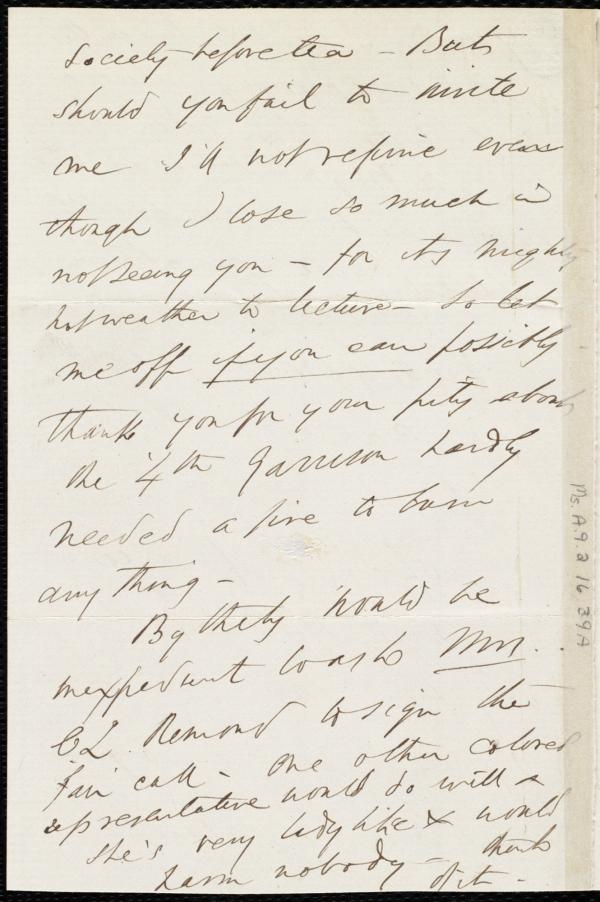 society before tea – But
should you fail to invite
me I'll not repine even
though I lose so much in
not seeing you – for its mighty
hot weather to lecture – So let
me off if you can possibly
thank you for your pity about
the 4th Garrison hardly
needed a fire to burn
any thing –
By the by would be
inexpedient to ask Mrs.
C L Remond to sign the
Fair call – one other colored
representative would do well &
she's very ladylike & would
harm nobody – think
of it –
Ms. A.9.2 16 39A